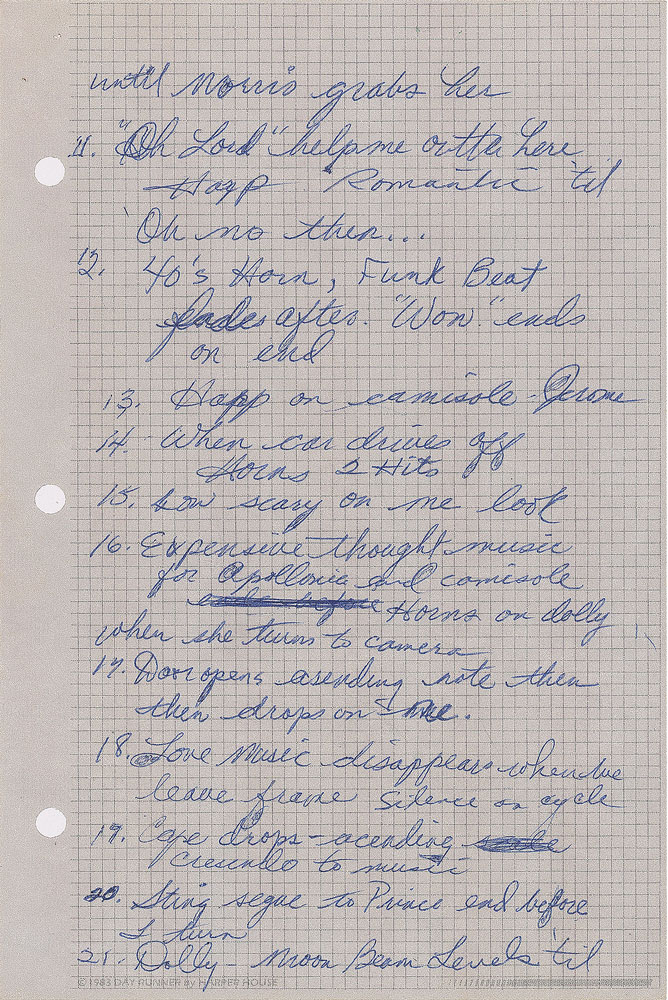 until Morris grabs her
11. "Oh Lord" help me outta here
Harp Romantic 'til
'Oh no then...
12. 40's Horn, Funk Beat
fades after. "Won." ends
on end
13. Harp on camisole - Jerome
14. When car drives off
Horns 2 Hits
15. Low scary on me look
16. Expensive thought music
for Apollonia and camisole
Horns on dolly
when she turns to camera
17. Door opens asending note then
then drops on me.
18. Love music disappears when we
leave frame Silence on cycle
19. Cape drops - acending
Cresendo to music
20. Sting segue to Prince end before
I turn
21. Dolly - Moon Beam Levels 'til
© 1983 DAY RUNNER by HARPER HOUSE